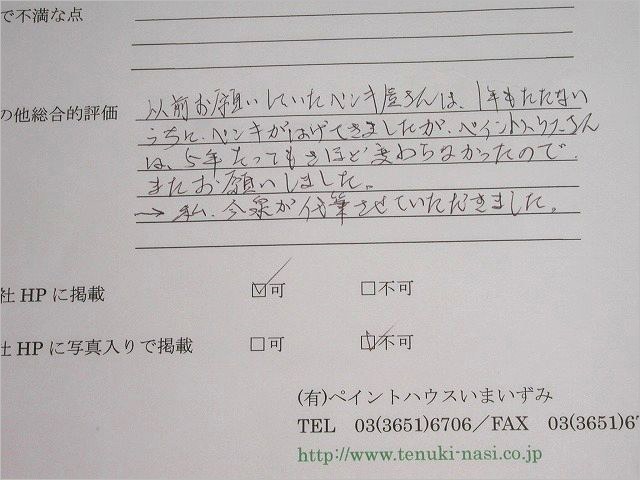 で不満な点
の他総合的評価
以前お願いしていたペンキ屋さんは、1年もたたない
うちに、ペンキがはげてきましたが、ペイントハウスさん
は、5年たってもさほど変わらなかったので、
またお願いしました。
→ 私、今泉が代筆させていただきました。
社HPに掲載 ☑可 □不可
社HPに写真入りで掲載 □可 ☑不可
(有)ペイントハウスいまいずみ
TEL 03(3651)6706／FAX 03(3651)67
http://www.tenuki-nasi.co.jp